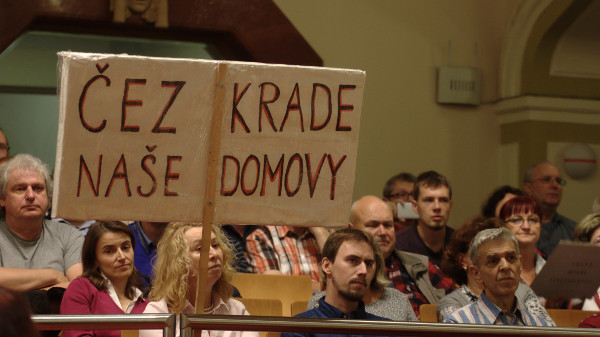 ČEZ KRADE
NAŠE DOMOVY